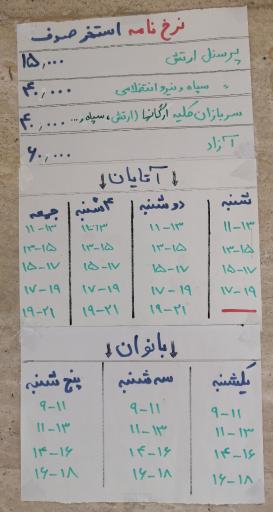 نرخ نامه استخر صدف
پرسنل ارتش ۱۵,۰۰۰
" سپاه و نیرو انتظامی ۴۰,۰۰۰
سربازان کلیه ارگانها (ارتش، سپاه و... ۴۰,۰۰۰
آزاد ۶۰,۰۰۰
↓ آقایان ↓
شنبه دوشنبه ۴شنبه جمعه
۱۱-۱۳ ۱۱-۱۳ ۱۱-۱۳ ۱۱-۱۳
۱۳-۱۵ ۱۳-۱۵ ۱۳-۱۵ ۱۳-۱۵
۱۵-۱۷ ۱۵-۱۷ ۱۵-۱۷ ۱۵-۱۷
۱۷-۱۹ ۱۷-۱۹ ۱۷-۱۹ ۱۷-۱۹
۱۹-۲۱ ۱۹-۲۱ ۱۹-۲۱
↓ بانوان ↓
یکشنبه سه شنبه پنج شنبه
۹-۱۱ ۹-۱۱ ۹-۱۱
۱۱-۱۳ ۱۱-۱۳ ۱۱-۱۳
۱۴-۱۶ ۱۴-۱۶ ۱۴-۱۶
۱۶-۱۸ ۱۶-۱۸ ۱۶-۱۸